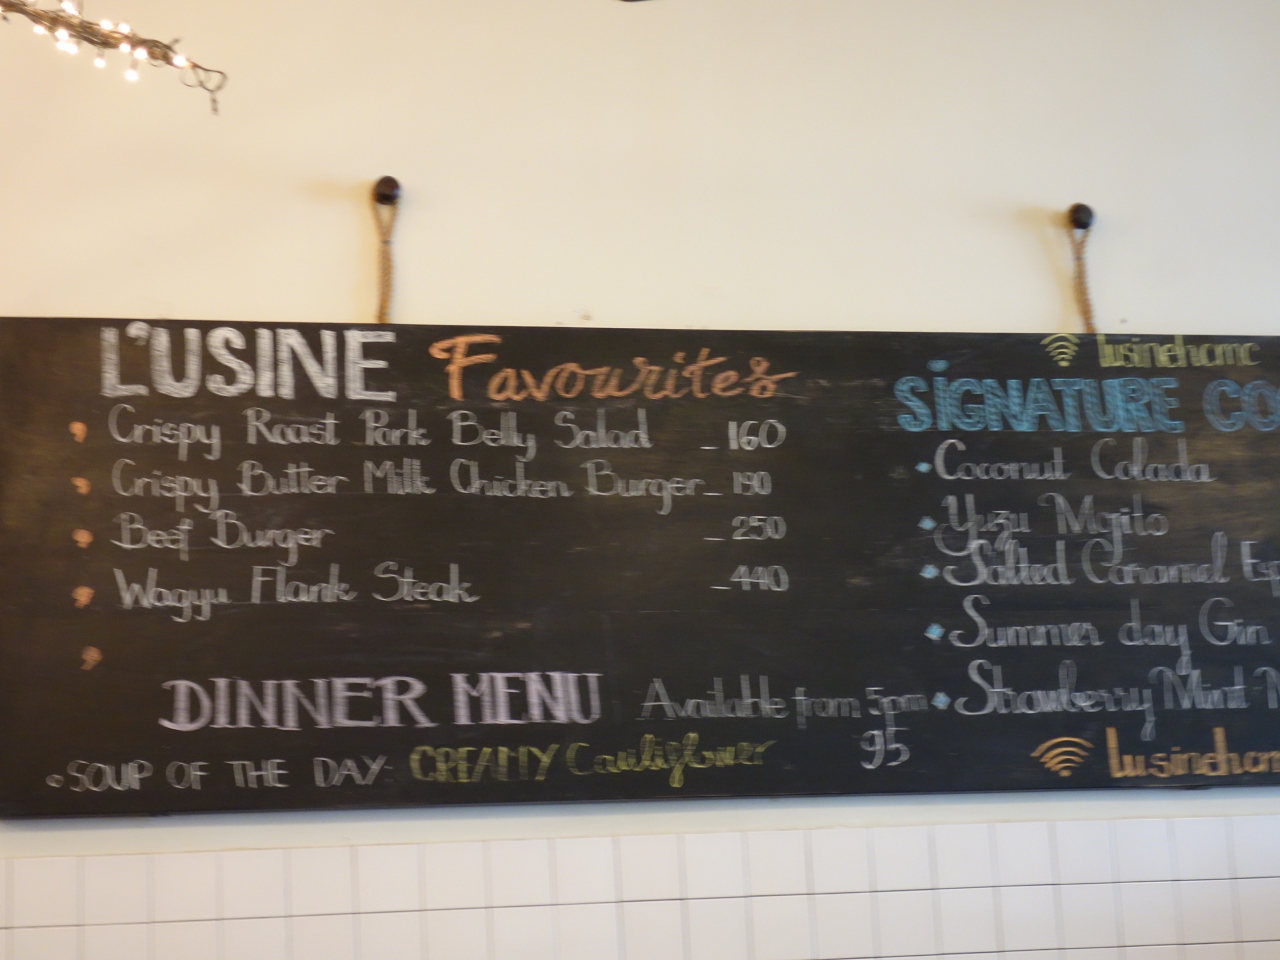 L'USINE Favourites
Crispy Roast Pork Belly Salad _ 160
Crispy Butter Milk Chicken Burger _ 190
Beef Burger _ 250
Wagyu Flank Steak _ 440
DINNER MENU Available from 5pm
SOUP OF THE DAY CREAMY Cauliflower 95
lusinehcmc
SIGNATURE CO
Coconut Colada
Yuzu Mojito
Salted Caramel Esp
Summer day Gin
Strawberry Mint
lusinehcm